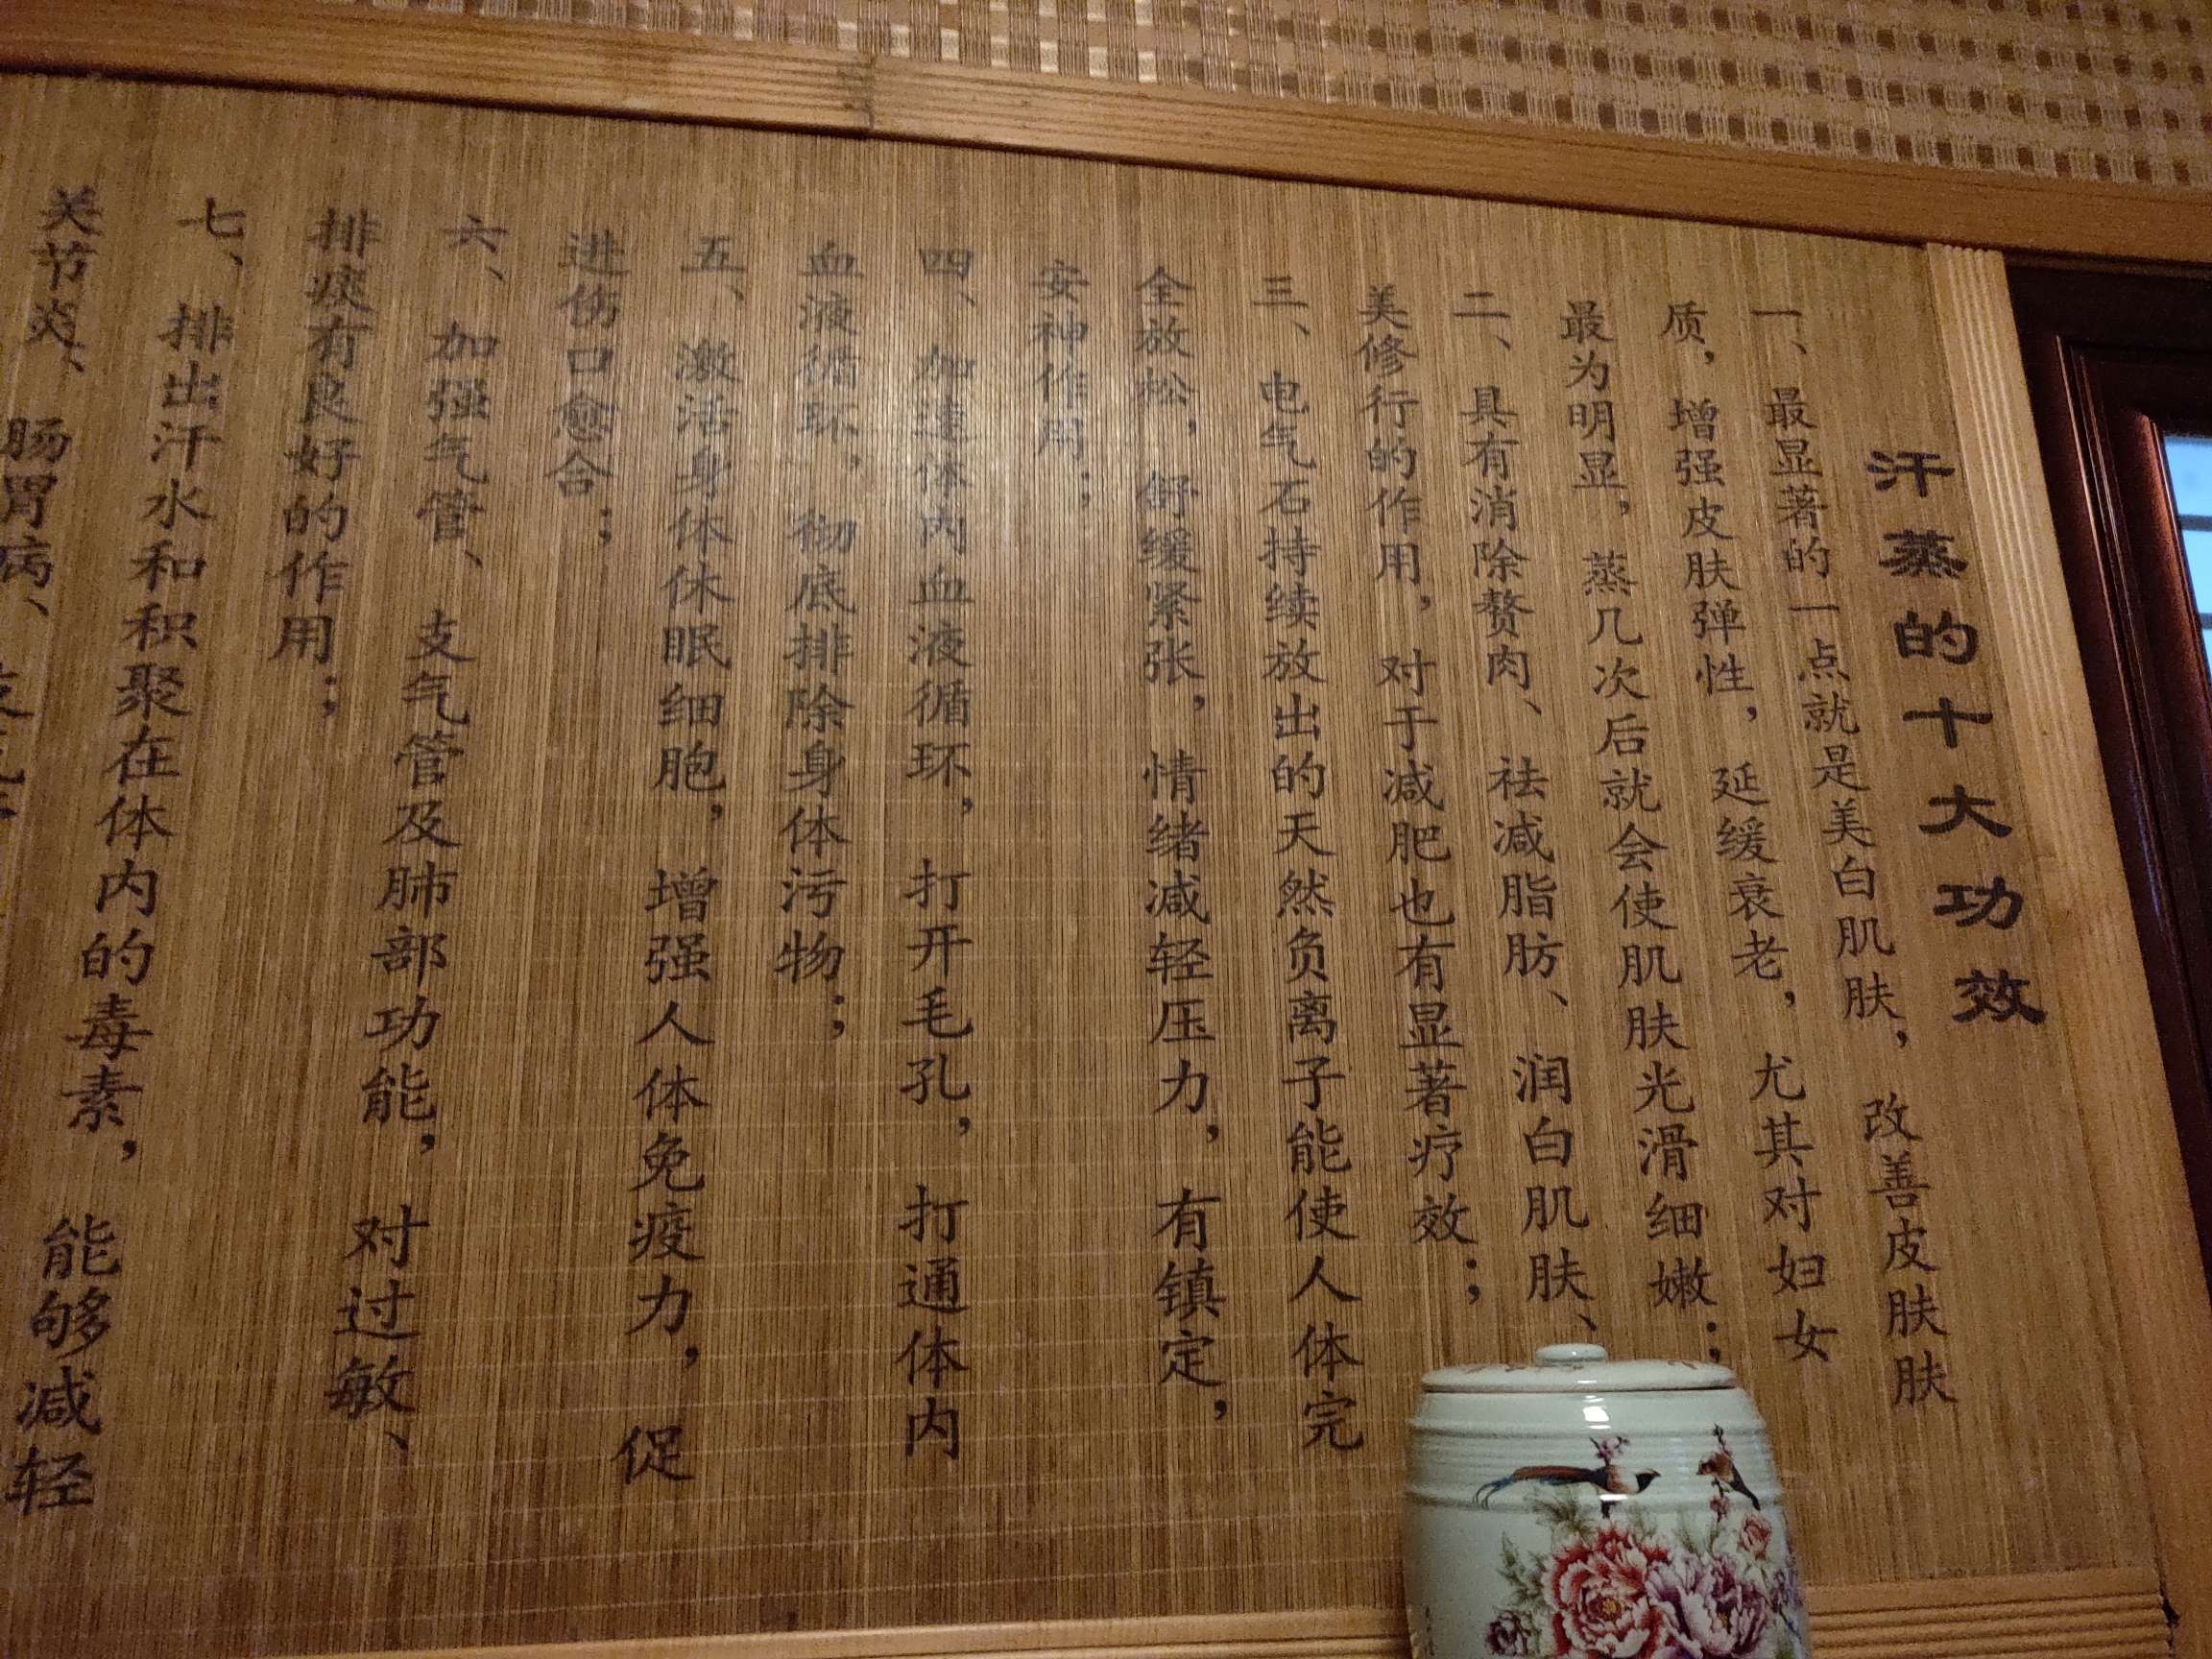 汗蒸的十大功效
一、最显著的一点就是美白肌肤，改善皮肤肤
质，增强皮肤弹性，延缓衰老，尤其对妇女
最为明显，蒸几次后就会使肌肤光滑细嫩；
二、具有消除赘肉、祛减脂肪、润白肌肤、
美修行的作用，对于减肥也有显著疗效；
三、电气石持续放出的天然负离子能使人体完
全放松，舒缓紧张，情绪减轻压力，有镇定，
安神作用；
四、加速体内血液循环，打开毛孔，打通体内
血液循环，彻底排除身体污物；
五、激活身体休眠细胞，增强人体免疫力，促
进伤口愈合；
六、加强气管、支气管及肺部功能，对过敏、
排痰有良好的作用；
七、排出汗水和积聚在体内的毒素，能够减轻
关节炎、肠胃病、